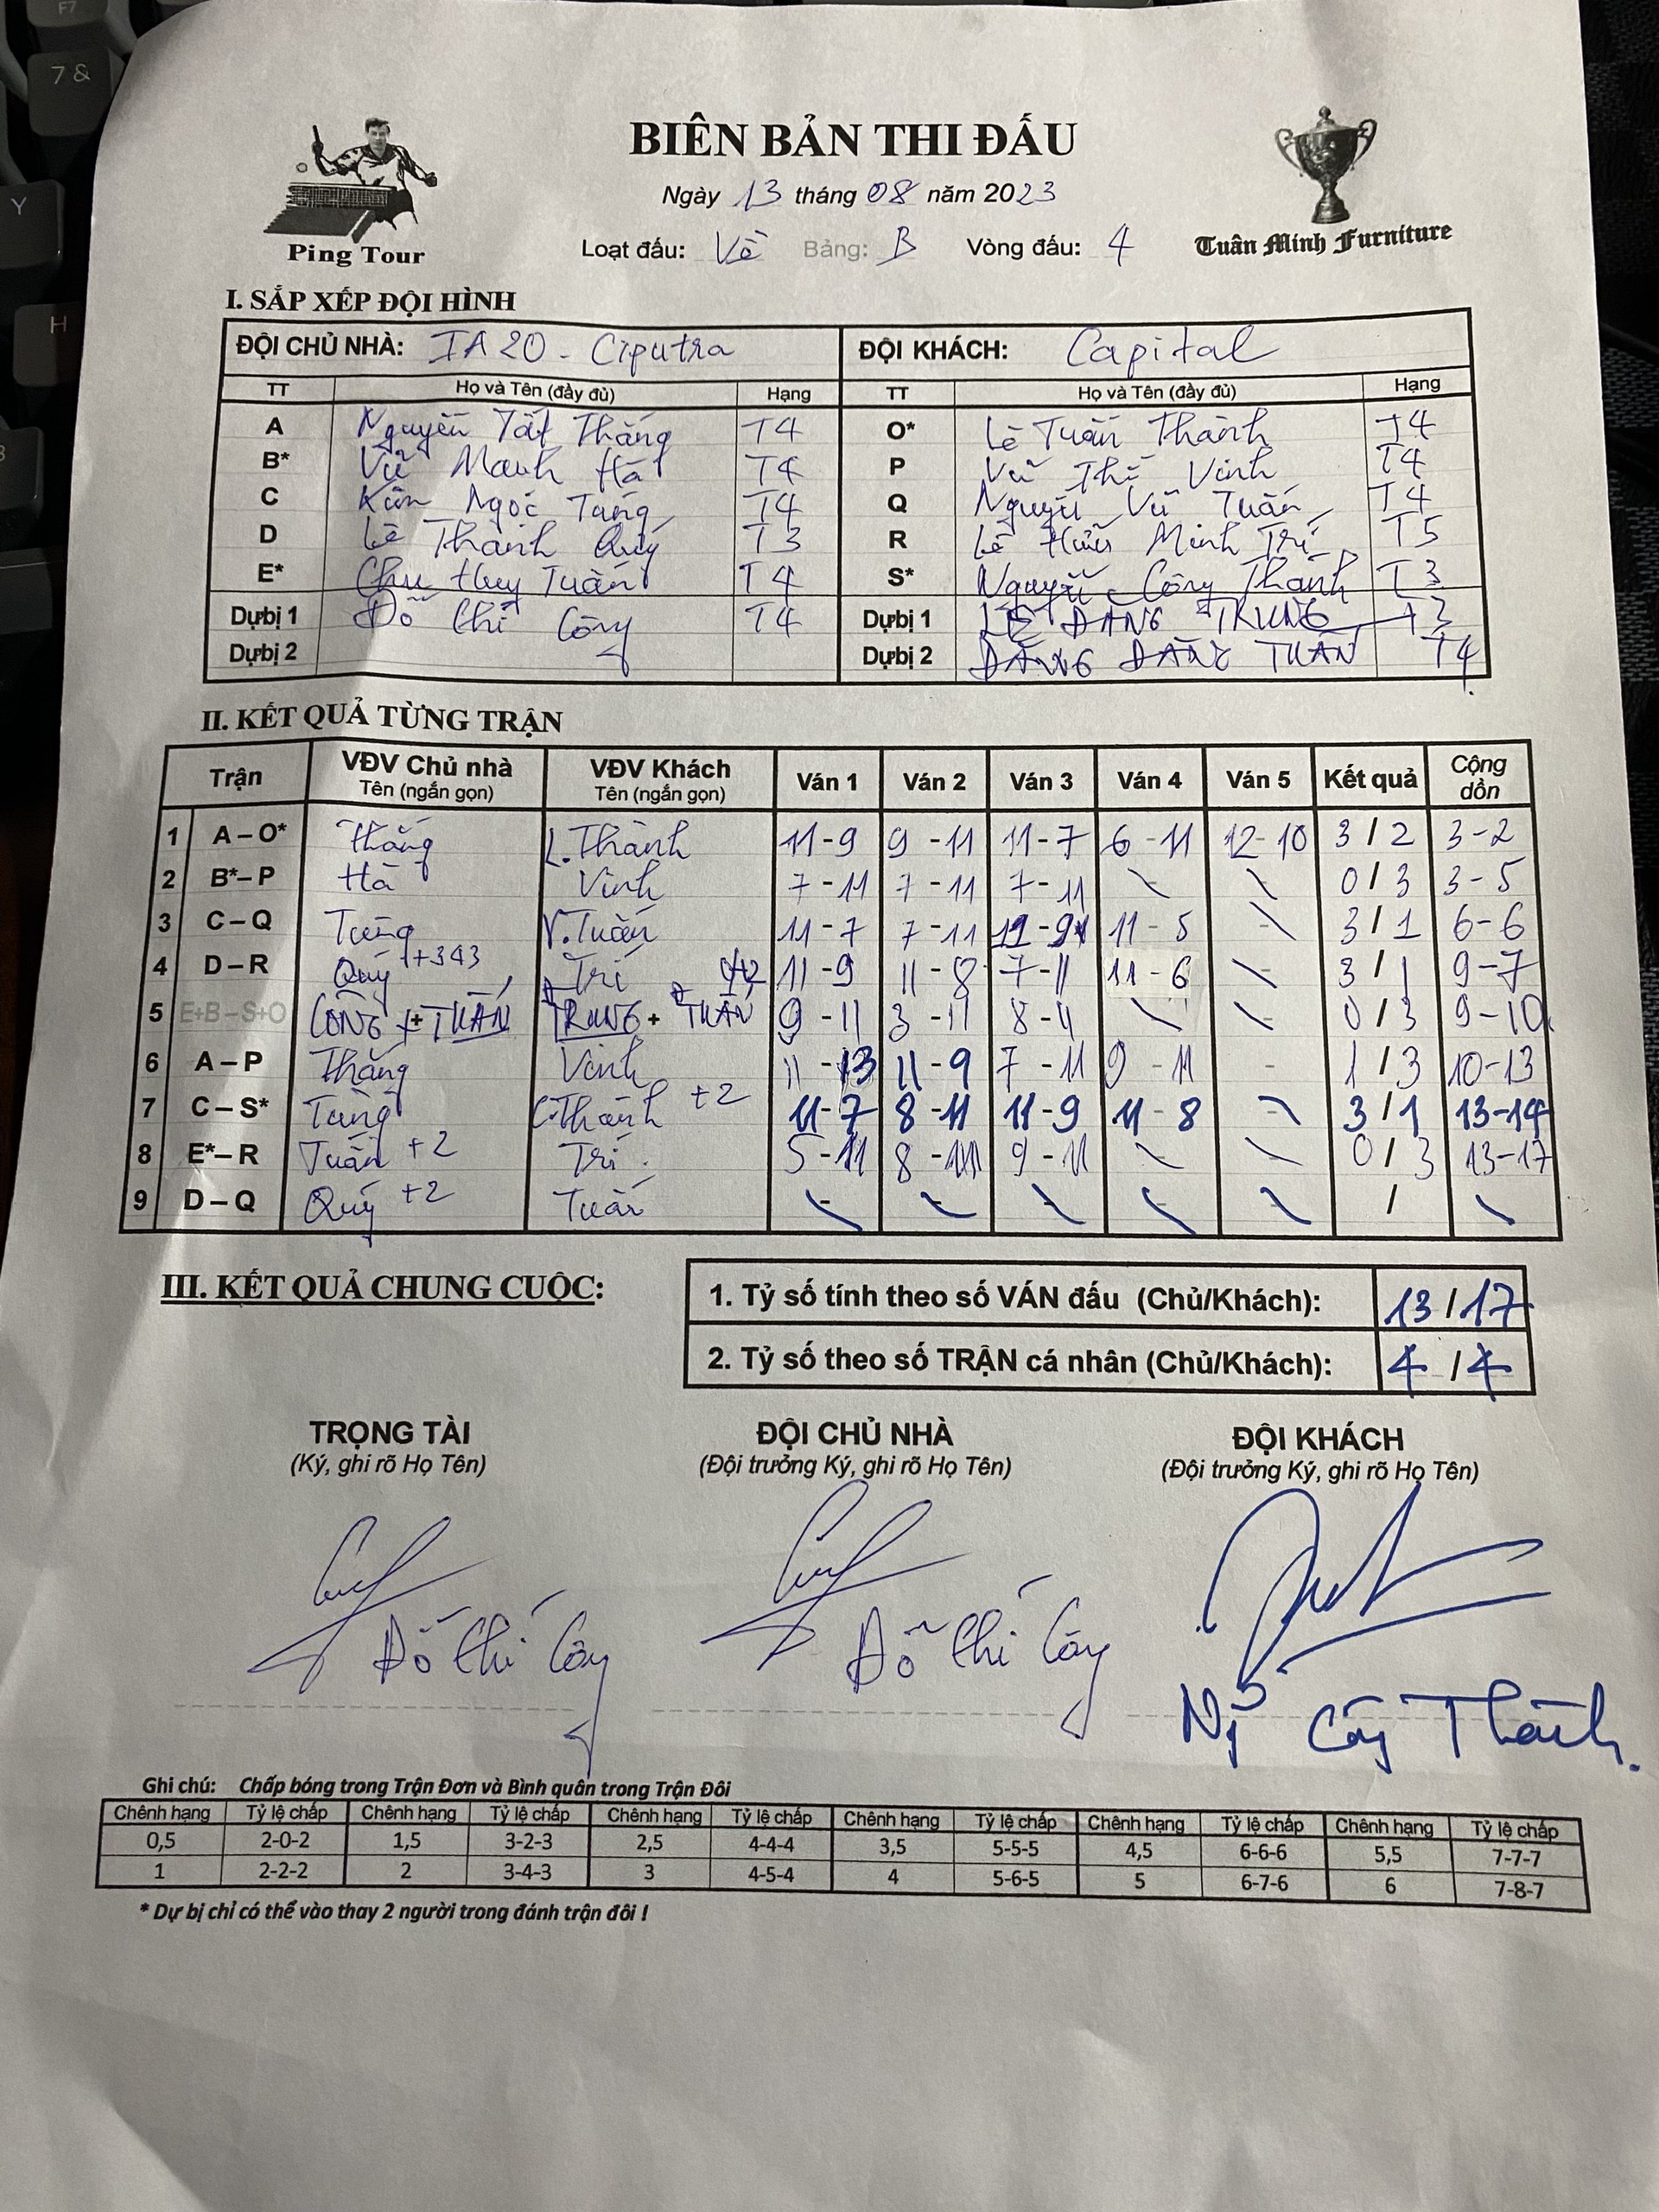 BIÊN BẢN THI ĐẤU
Ngày 13 tháng 08 năm 2023
Ping Tour
Loạt đấu: Về Bảng: B Vòng đấu: 4
Tuân Minh Furniture
I. SẮP XẾP ĐỘI HÌNH
ĐỘI CHỦ NHÀ: IA20 - Ciputra ĐỘI KHÁCH: Capital
TT Họ và Tên (đầy đủ) Hạng TT Họ và Tên (đầy đủ) Hạng
A Nguyễn Tất Thắng T4 O* Lê Tuấn Thành T4
B* Vũ Mạnh Hà T4 P Vũ Thế Vinh T4
C Kim Ngọc Tùng T4 Q Nguyễn Vũ Tuấn T4
D Lê Thành Quý T3 R Lê Hữu Minh Trí T5
E* Chu Huy Tuấn T4 S* Nguyễn Công Thành T3
Dự bị 1 Đỗ Chí Công T4 Dự bị 1 LÊ ĐĂNG TRUNG T3
Dự bị 2 Dự bị 2 ĐĂNG TUẤN T4
II. KẾT QUẢ TỪNG TRẬN
Trận VĐV Chủ nhà Tên (ngắn gọn) VĐV Khách Tên (ngắn gọn) Ván 1 Ván 2 Ván 3 Ván 4 Ván 5 Kết quả Cộng dồn
1 A – O* Thắng L.Thành 11-9 9-11 11-7 6-11 12-10 3/2 3-2
2 B*– P Hà Vinh 7-11 7-11 7-11 \ \ 0/3 3-5
3 C – Q Tùng V.Tuấn 11-7 7-11 11-9 11-5 \ 3/1 6-6
4 D – R Quý +343 Trí 11-9 11-8 7-11 11-6 \ 3/1 9-7
5 E+B – S+O CÔNG + TUẤN TRUNG + TUẤN 9-11 3-11 8-11 \ \ 0/3 9-10
6 A – P Thắng Vinh 11-13 11-9 7-11 9-11 - 1/3 10-13
7 C – S* Tùng C.Thành +2 11-7 8-11 11-9 11-8 \ 3/1 13-14
8 E*– R Tuấn +2 Trí 5-11 8-11 9-11 \ \ 0/3 13-17
9 D – Q Quý +2 Tuấn \ \ \ \ \ / \
III. KẾT QUẢ CHUNG CUỘC:
1. Tỷ số tính theo số VÁN đấu (Chủ/Khách): 13/17
2. Tỷ số theo số TRẬN cá nhân (Chủ/Khách): 4/4
TRỌNG TÀI ĐỘI CHỦ NHÀ ĐỘI KHÁCH
(Ký, ghi rõ Họ Tên) (Đội trưởng Ký, ghi rõ Họ Tên) (Đội trưởng Ký, ghi rõ Họ Tên)
Đỗ Chí Công Đỗ Chí Công Ng Công Thành.
Ghi chú: Chấp bóng trong Trận Đơn và Bình quân trong Trận Đôi
Chênh hạng Tỷ lệ chấp Chênh hạng Tỷ lệ chấp Chênh hạng Tỷ lệ chấp Chênh hạng Tỷ lệ chấp Chênh hạng Tỷ lệ chấp Chênh hạng Tỷ lệ chấp
0,5 2-0-2 1,5 3-2-3 2,5 4-4-4 3,5 5-5-5 4,5 6-6-6 5,5 7-7-7
1 2-2-2 2 3-4-3 3 4-5-4 4 5-6-5 5 6-7-6 6 7-8-7
* Dự bị chỉ có thể vào thay 2 người trong đánh trận đôi !